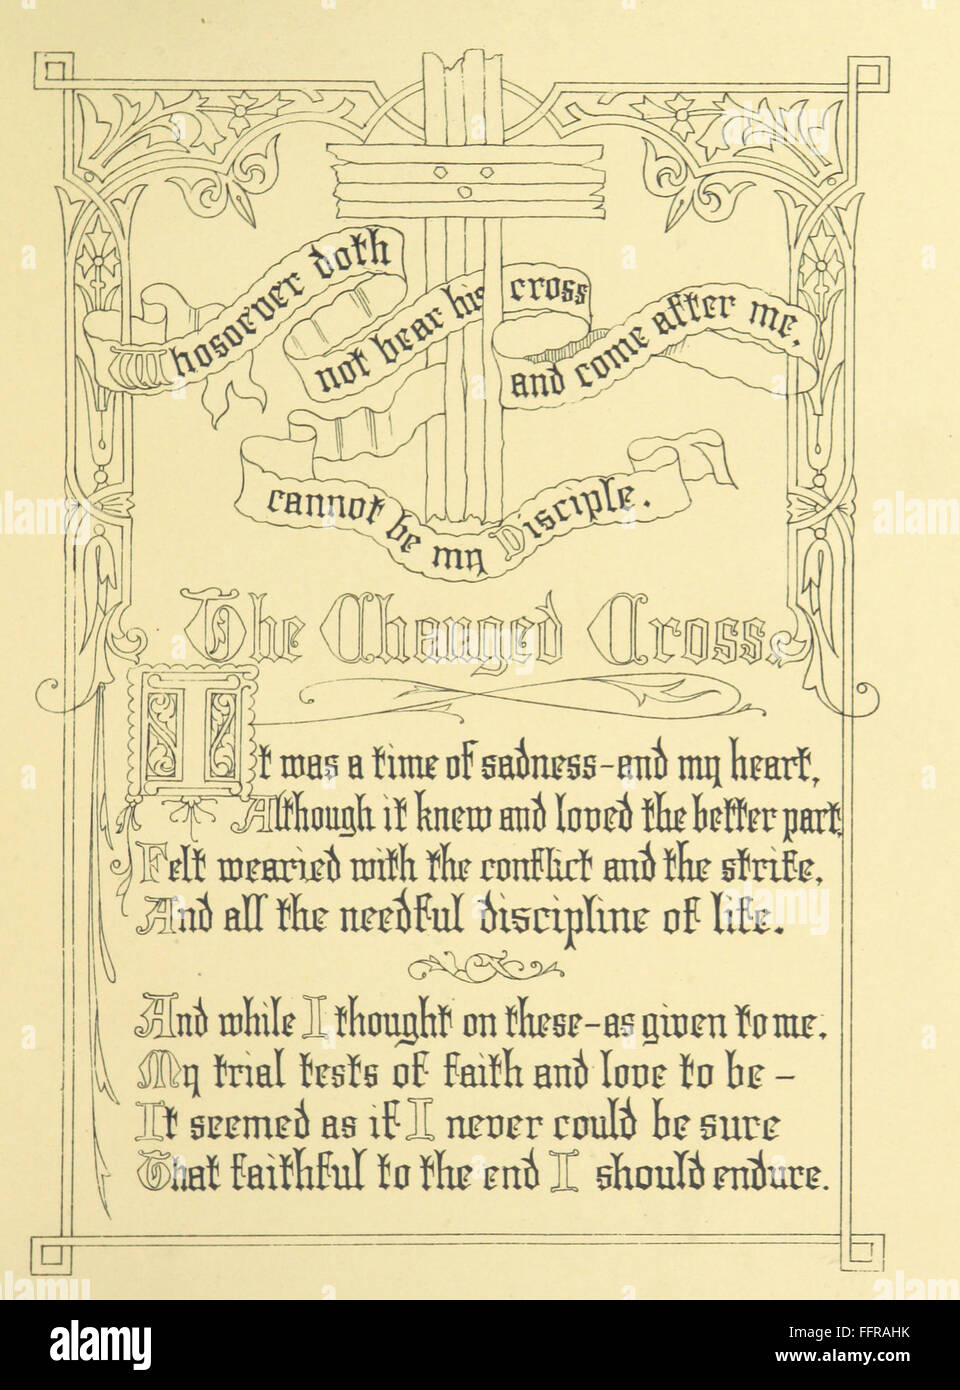 Whosoever doth
not bear his cross
and come after me,
cannot be my Disciple.
The Changed Cross.
It was a time of sadness–and my heart,
Although it knew and loved the better part,
Felt wearied with the conflict and the strife,
And all the needful discipline of life.
And while I thought on these–as given to me,
My trial tests of faith and love to be –
It seemed as if I never could be sure
That faithful to the end I should endure.
alamy
Image ID: FFRAHK
www.alamy.com